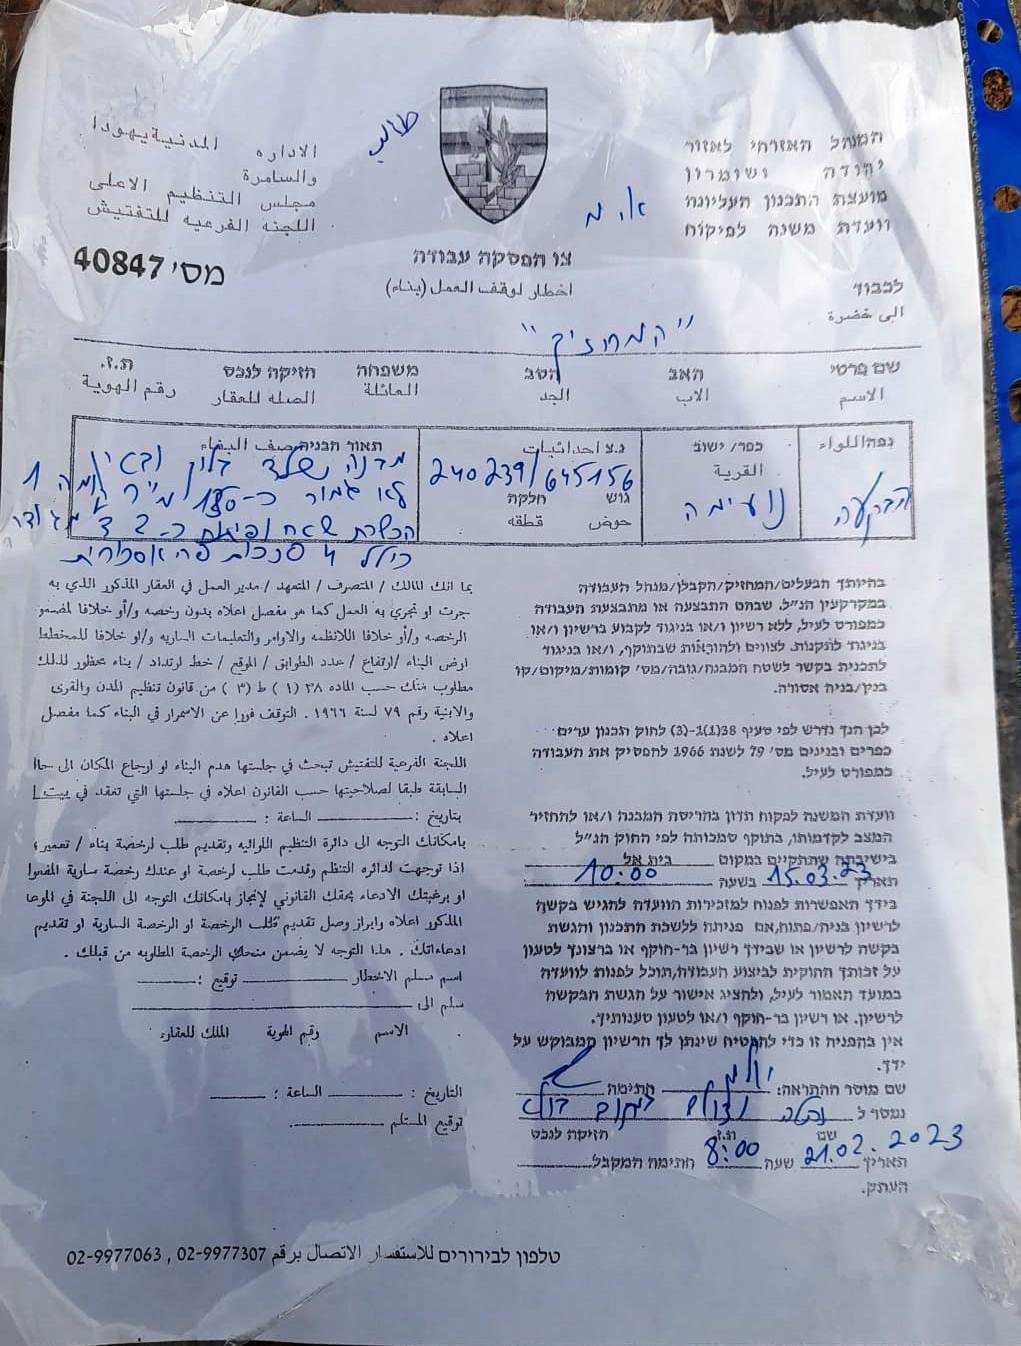 המנהל האזרחי לאזור
יהודה ושומרון
מועצת התכנון העליונה
וועדת משנה לפיקוח
الاداره المدنية يهودا
والسامرة
مجلس التنظيم الاعلى
اللجنه الفرعيه للتفتيش
מס' 40847
צו הפסקה עבודה
اخطار لوقف العمل (بناء)
לכבוד
الى حضرة
"המחזיק"
שם פרטי האב הסב משפחה חזיקה לנכס ת.ז.
الاسم الاب الجد العائلة الصله للعقار رقم الهوية
נפה اللواء
הבקעה
כפר/ ישוב
القرية
נועימה
נ.צ احداثيات
240239/645156
גוש חלקה
حوض قطعه
תאור הבניה وصف البناء
מבנה שלד בלוק ובטון קומה 1
לא גמור כ-180 מ"ר
הכשרת שטח
כולל 4
בהיותך הבעלים/המחזיק/הקבלן/מנהל העבודה
במקרקעין הנ"ל, שבהם התבצעה או מתבצעת העבודה
כמפורט לעיל, ללא רשיון ו/או בניגוד לקבוע ברשיון ו/או
בניגוד לתקנות, לצווים ולהוראות שבתוקף, ו/או בניגוד
לתכנית בקשר לשטח המבנה/גובה/מס' קומות/מיקום/קו
בנין/בניה אסורה.
לכן הנך נדרש לפי סעיף 38(1)-1(3) לחוק תכנון ערים
כפרים ובנינים מס' 79 לשנת 1966 להפסיק את העבודה
כמפורט לעיל.
וועדת המשנה לפקוח תדון בהריסה המבנה ו/או להחזיר
המצב לקדמותו, בתוקף סמכותה לפי החוק הנ"ל
בישיבתה שתתקיים במקום בית אל
תאריך 15.03.23 בשעה 10:00
בידך האפשרות לפנות למזכירות הוועדה להגיש בקשה
לרשיון בניה/פתוח, אם פניתה ללשכת התכנון והגשת
בקשה לרשיון או שבידך רשיון בר-תוקף או ברצונך לטעון
על זכותך החוקית לביצוע העבודה, תוכל לפנות לוועדה
במועד האמור לעיל, ולהציג אישור על הגשת הבקשה
לרשיון, או רשיון בר-תוקף ו/או לטעון טענותיך.
אין בהפניה זו כדי להבטיח שינתן לך הרשיון המבוקש על
ידך.
שם מוסר ההתראה: חתימה
נמסר ל
שם ת.ז. חזיקה לנכס
תאריך 21.02.2023 שעה 8:00 חתימה המקבל
העתק.
بما انك المالك / المتصرف / المتعهد / مدير العمل في العقار المذكور الذي به
جرت او تجري به العمل كما هو مفصل اعلاه بدون رخصه و/أو خلافا لمضمو
الرخصه و/أو خلافا للانظمه والاوامر والتعليمات الساريه و/او خلافا للمخطط
ارض البناء /ارتفاع / عدد الطوابق / الموقع / خط ارتداد / بناء محظور لذلك
مطلوب منك حسب الماده ٣٨ (١) ط (٣) من قانون تنظيم المدن والقرى
والابنية رقم ٧٩ لسنة ١٩٦٦ . التوقف فورا عن الاسمرار في البناء كما مفصل
اعلاه .
اللجنة الفرعية للتفتيش تبحث في جلستها هدم البناء او ارجاع المكان الى حاا
السابقة طبقا لصلاحيتها حسب القانون اعلاه في جلستها التي تنعقد في بيت ا
بتاريخ : الساعة :
بامكانك التوجه الى دائرة التنظيم اللوائيه وتقديم طلب لرخصة بناء / تعمير؛
اذا توجهت لدائره التنظم وقدمت طلب لرخصة او عندك رخصة سارية المفعوا
او برغبتك الادعاء بحقك القانوني لإنجاز بامكانك التوجه الى اللجنة في الموعا
المذكور اعلاه وابراز وصل تقديم طلب الرخصة او الرخصة السارية او تقديم
ادعاءاتك . هذا التوجه لا يضمن منحك الرخصة المطلوبه من قبلك .
اسم مسلم الاخطار توقيع :
سلم الى
الاسم رقم الهوية الملك للعقار؛
التاريخ : الساعة :
توقيع المستلم
טלפון לבירורים للاستفسار الاتصال برقم 02-9977307 , 02-9977063